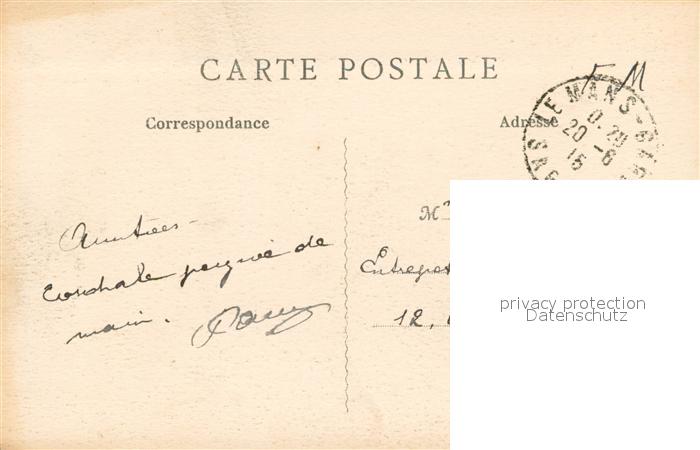 CARTE POSTALE
F M
Correspondance
Adresse
LE MANS-GARE
0-20
20-6
15
SARTHE
M
Amitiés
Cordiale poignée de
main.
Entrepot
12,
privacy protection
Datenschutz